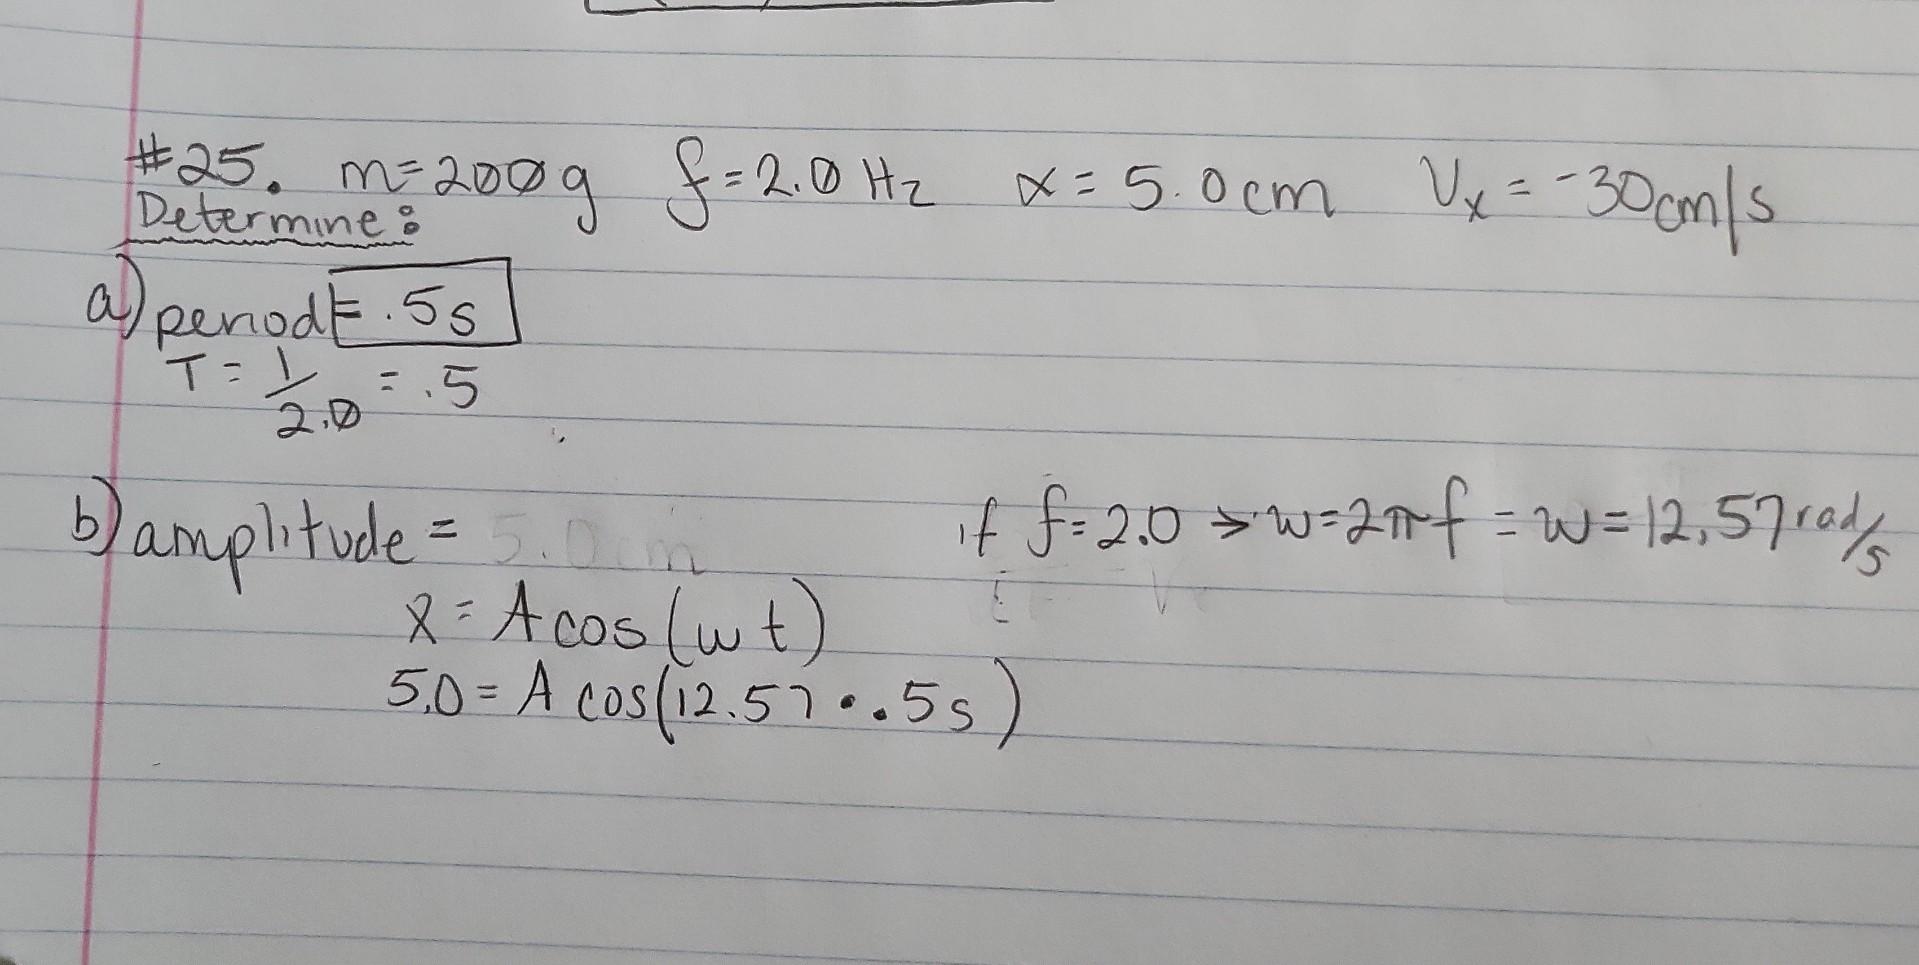 #25. m=200g f=2.0 Hz x=5.0cm Vx=-30cm/s
Determine:
a) period = .5s
T = 1/2.0 = .5
b) amplitude = 5.0cm if f=2.0 → w=2πf = w=12.57 rad/s
x = A cos(wt)
5.0 = A cos(12.57 · .5s)